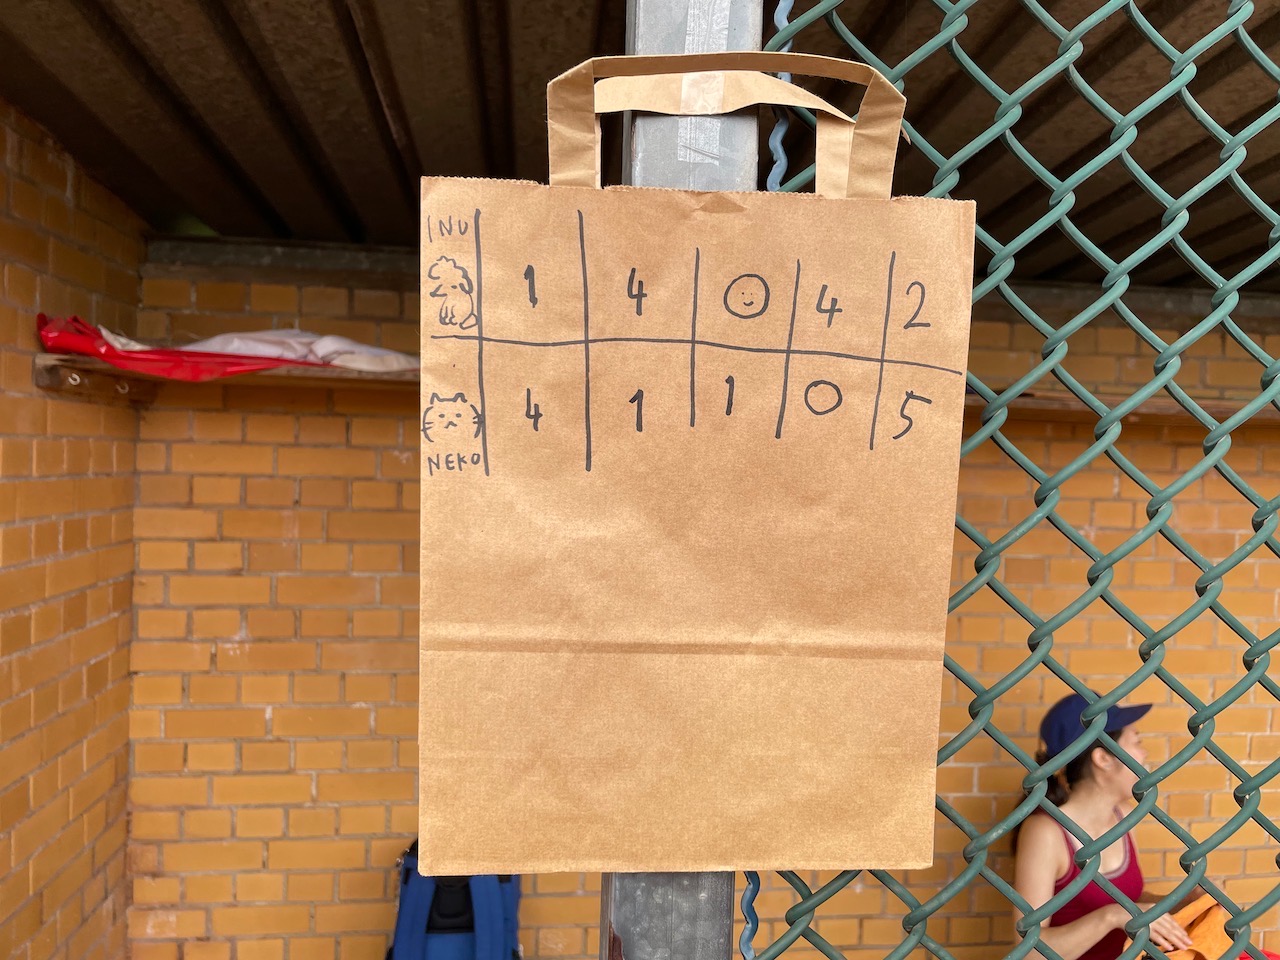 INU 1 4 0 4 2
NEKO 4 1 1 0 5